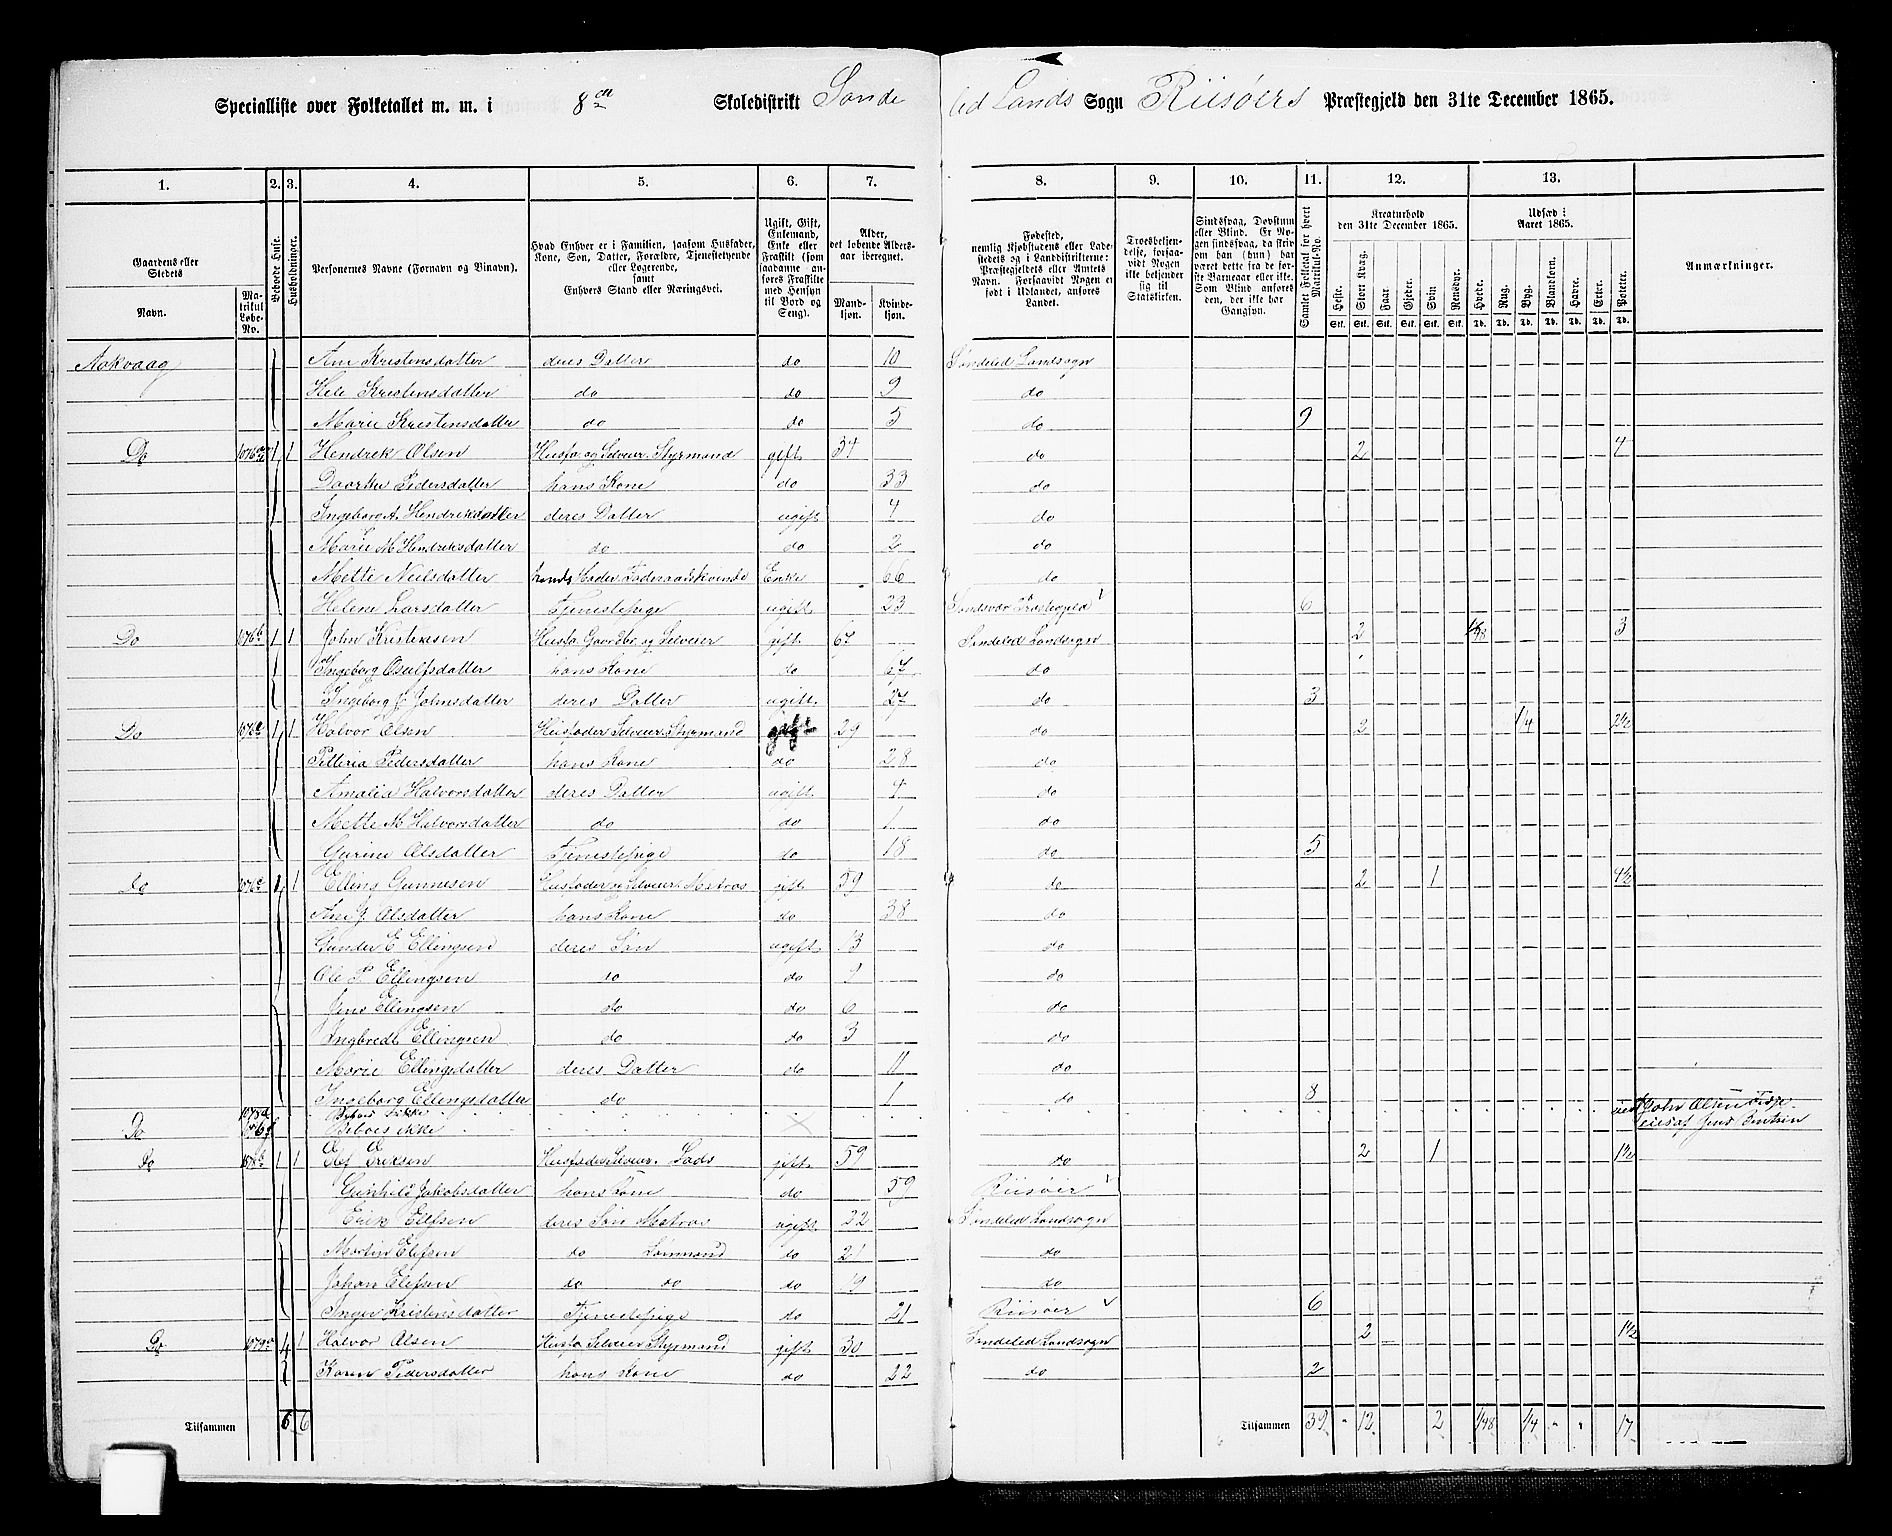 Specialliste over Folketallet m. m. i 8de Skoledistrikt Søndeled Lands Sogn Riisøers Præstegjeld den 31te December 1865.
1. 2. 3. 4. 5. 6. 7. 8. 9. 10. 11. 12. 13.
Gaardens eller Stedets
Navn.
Matrikul Løbe-No.
Beboede Huse.
Husholdninger.
Personernes Navne (Fornavn og Tilnavn).
Hvad Enhver er i Familien, saasom Husfader, Kone, Søn, Datter, Forældre, Tjenestetyende eller Logerende, samt Enhvers Stand eller Næringsvei.
Ugift, Gift, Enkemand, Enke eller Fraskilt (som saadanne anføres Fraskilte med Hensyn til Bord og Seng).
Alder, det løbende Aldersaar iberegnet.
Mandkjøn. Kvindekjøn.
Fødested, nemlig Kjøbstadens eller Ladestedets og i Landdistrikterne: Præstegjeldets eller Amtets Navn. Forsaavidt Nogen er født i Udlandet, anføres Landet.
Troesbekjendelse, forsaavidt Nogen ikke bekjender sig til Statskirken.
Sindssvag, Døvstum eller Blind. Er Nogen sindssvag, da skrives om han (hun) har været dette fra de første Barneaar eller ikke. Som Blind anføres den, der ikke har Gangsyn.
Samlet Folketal for hvert Matrikul-No.
Kreaturhold den 31te December 1865.
Heste. Stort Kvæg. Faar. Gjeder. Svin Rensdyr.
Stk. Stk. Stk. Stk. Stk. Stk.
Udsæd i Aaret 1865.
Hvede. Rug. Byg. Blandkorn. Havre. Erter. Poteter.
Td. Td. Td. Td. Td. Td. Td.
Anmærkninger.
Aakvaag Ane Kristensdatter deres Datter do 10 Søndeled Landsogn
Hele Kristensdatter do do 9 do
Marie Kristensdatter do do 5 do 9
Do 1 1 Hendrek Olsen Husfa og Selveier. Styrmand gift 34 do 2 4
Daarthe Pedersdatter hans Kone do 33 do
Ingeborg A. Hendreksdatter deres Datter ugift 4 do
Marie M Hendreksdatter do do 2 do
Mette Neilsdatter Mader. Føderaadskvinde Enke 66 do
Helene Larsdatter Tjenestepige ugift 23 Præstegjeld 6
Do 1076b 1 1 John Kristensen Husfa. Gaardbr. og Selveier gift 67 Søndeled Landsogn 2 1/48 3
Ingeborg Osulfsdatter hans Kone do 67 do
Ingeborg J Johnsdatter deres Datter ugift 27 do 3
Do 1076c 1 1 Halvor Olsen Husfader Selveier. Styrmand gift 29 do 2 1/4 2 1/2
Petteria Pedersdatter hans Kone do 28 do
Amalia Halvorsdatter deres Datter ugift 4 do
Mette M Halvorsdatter do do 1 do
Gurine Olsdatter Tjenestepige do 18 do 5
Do 1 1 Elling Gunnesen Husfader og Selveier. Matros gift 39 do 2 1 4 1/2
Ane J. Olsdatter hans Kone do 38 do
Gunder E Ellingsen deres Søn ugift 13 do
Ole P. Ellingsen do do do
Jens Ellingsen do do 6 do
Ingbredt Ellingsen do do 3 do
Marie Ellingsdatter deres Datter do 11 do
Ingeborg Ellingsdatter do 1 do 8
Beboes ikke John Olsen
Do Beboes ikke
Do 1 1 Elef Eriksen Husfader Selveier. Lods gift 59 do 2 1 1 1/2
Gunhild Jakobsdatter hans Kone do 59 Riisøer
Erik Elefsen deres Søn Matros ugift 22 Søndeled Landsogn
Martin Elefsen do Sømmand do 21 do
Johan Elefsen do do do 19 do
Inger Kristensdatter Tjenestepige do 21 Riisøer 6
Do 1 1 Halvor Olsen Husfa Selveier Styrmand gift 30 Søndeled Landsogn 2 1 1/2
Karen Pedersdatter hans Kone do 22 do 2
Tilsammen 6 6 Tilsammen 39 " 12 2 1/48 1/4 " " 17